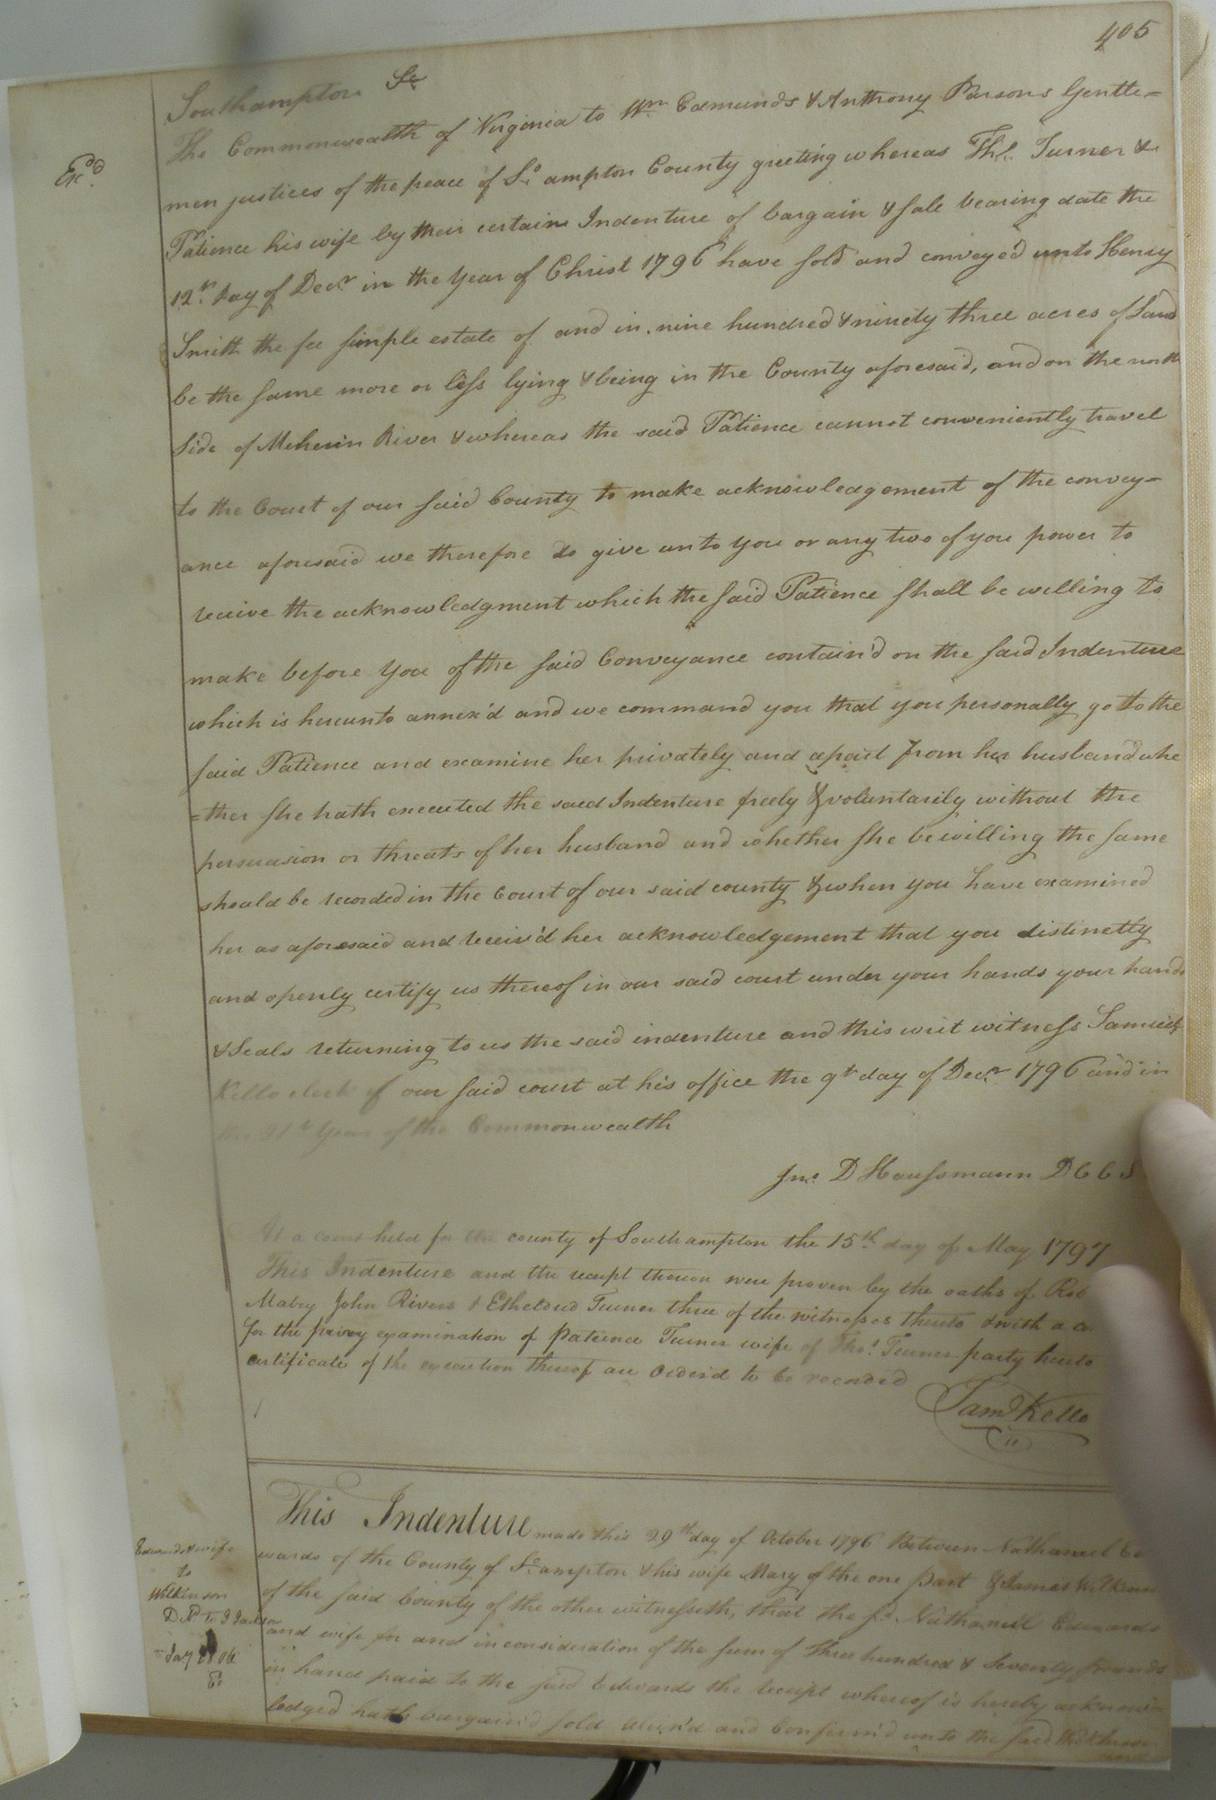 405
Southampton Sc
Exd.
The Commonwealth of Virginia to Wm. Edmunds & Anthony Parsons Gentle=
men justices of the peace of So.ampton County greeting whereas Ths. Turner &
Patience his wife by their certain Indenture of bargain & sale bearing date the
12th. Day of Decr. in the Year of Christ 1796 have sold and convey'd unto Henry
Smith the fee simple estate of and in nine hundred & ninety three acres of Land
be the same more or less lying & being in the County aforesaid, and on the north
side of Meherin River & whereas the said Patience cannot conveniently travel
to the Court of our said County to make acknowledgement of the convey=
ance aforesaid we therefore do give unto you or any two of you power to
receive the acknowledgment which the said Patience shall be willing to
make before you of the said Conveyance contain'd on the said Indenture
which is hereunto annex'd and we command you that you personally go to the
said Patience and examine her privately and apart from her husband whe
=ther she hath executed the said Indenture freely & voluntarily without the
persuasion or threats of her husband and whether she be willing the same
should be recorded in the Court of our said county & when you have examined
her as aforesaid and receiv'd her acknowledgement that you distinctly
and openly certify us thereof in our said court under your hands your hands
& Seals returning to us the said indenture and this writ witness Samuel
Kello clerk of our said court at his office the 9th day of Decr. 1796 and in
the 21st Year of the Commonwealth
Jno. D Haussmann D C C S
At a court held for the county of Southampton the 15th. day of May 1797
This Indenture and the receipt thereon were proven by the oaths of Rob
Mabry John Rivers & Etheldred Turner three of the witnesses thereto & with a
for the privy examination of Patience Turner wife of Thos. Turner party hereto
certificate of the execution thereof are Order'd to be recorded
Saml Kello
This Indenture made this 29th day of October 1796 Between Nathaniel Ed
wards of the County of So.ampton & his wife Mary of the one part & James Wilkinson
of the said County of the other witnesseth, that the sd. Nathaniel Edwards
and wife for and in consideration of the sum of three hundred & Seventy pounds
in hand paid to the said Edwards the receipt whereof is hereby acknow=
ledged hath bargain'd sold alien'd and Confirm'd unto the said
Edwards & wife
to
Wilkinson